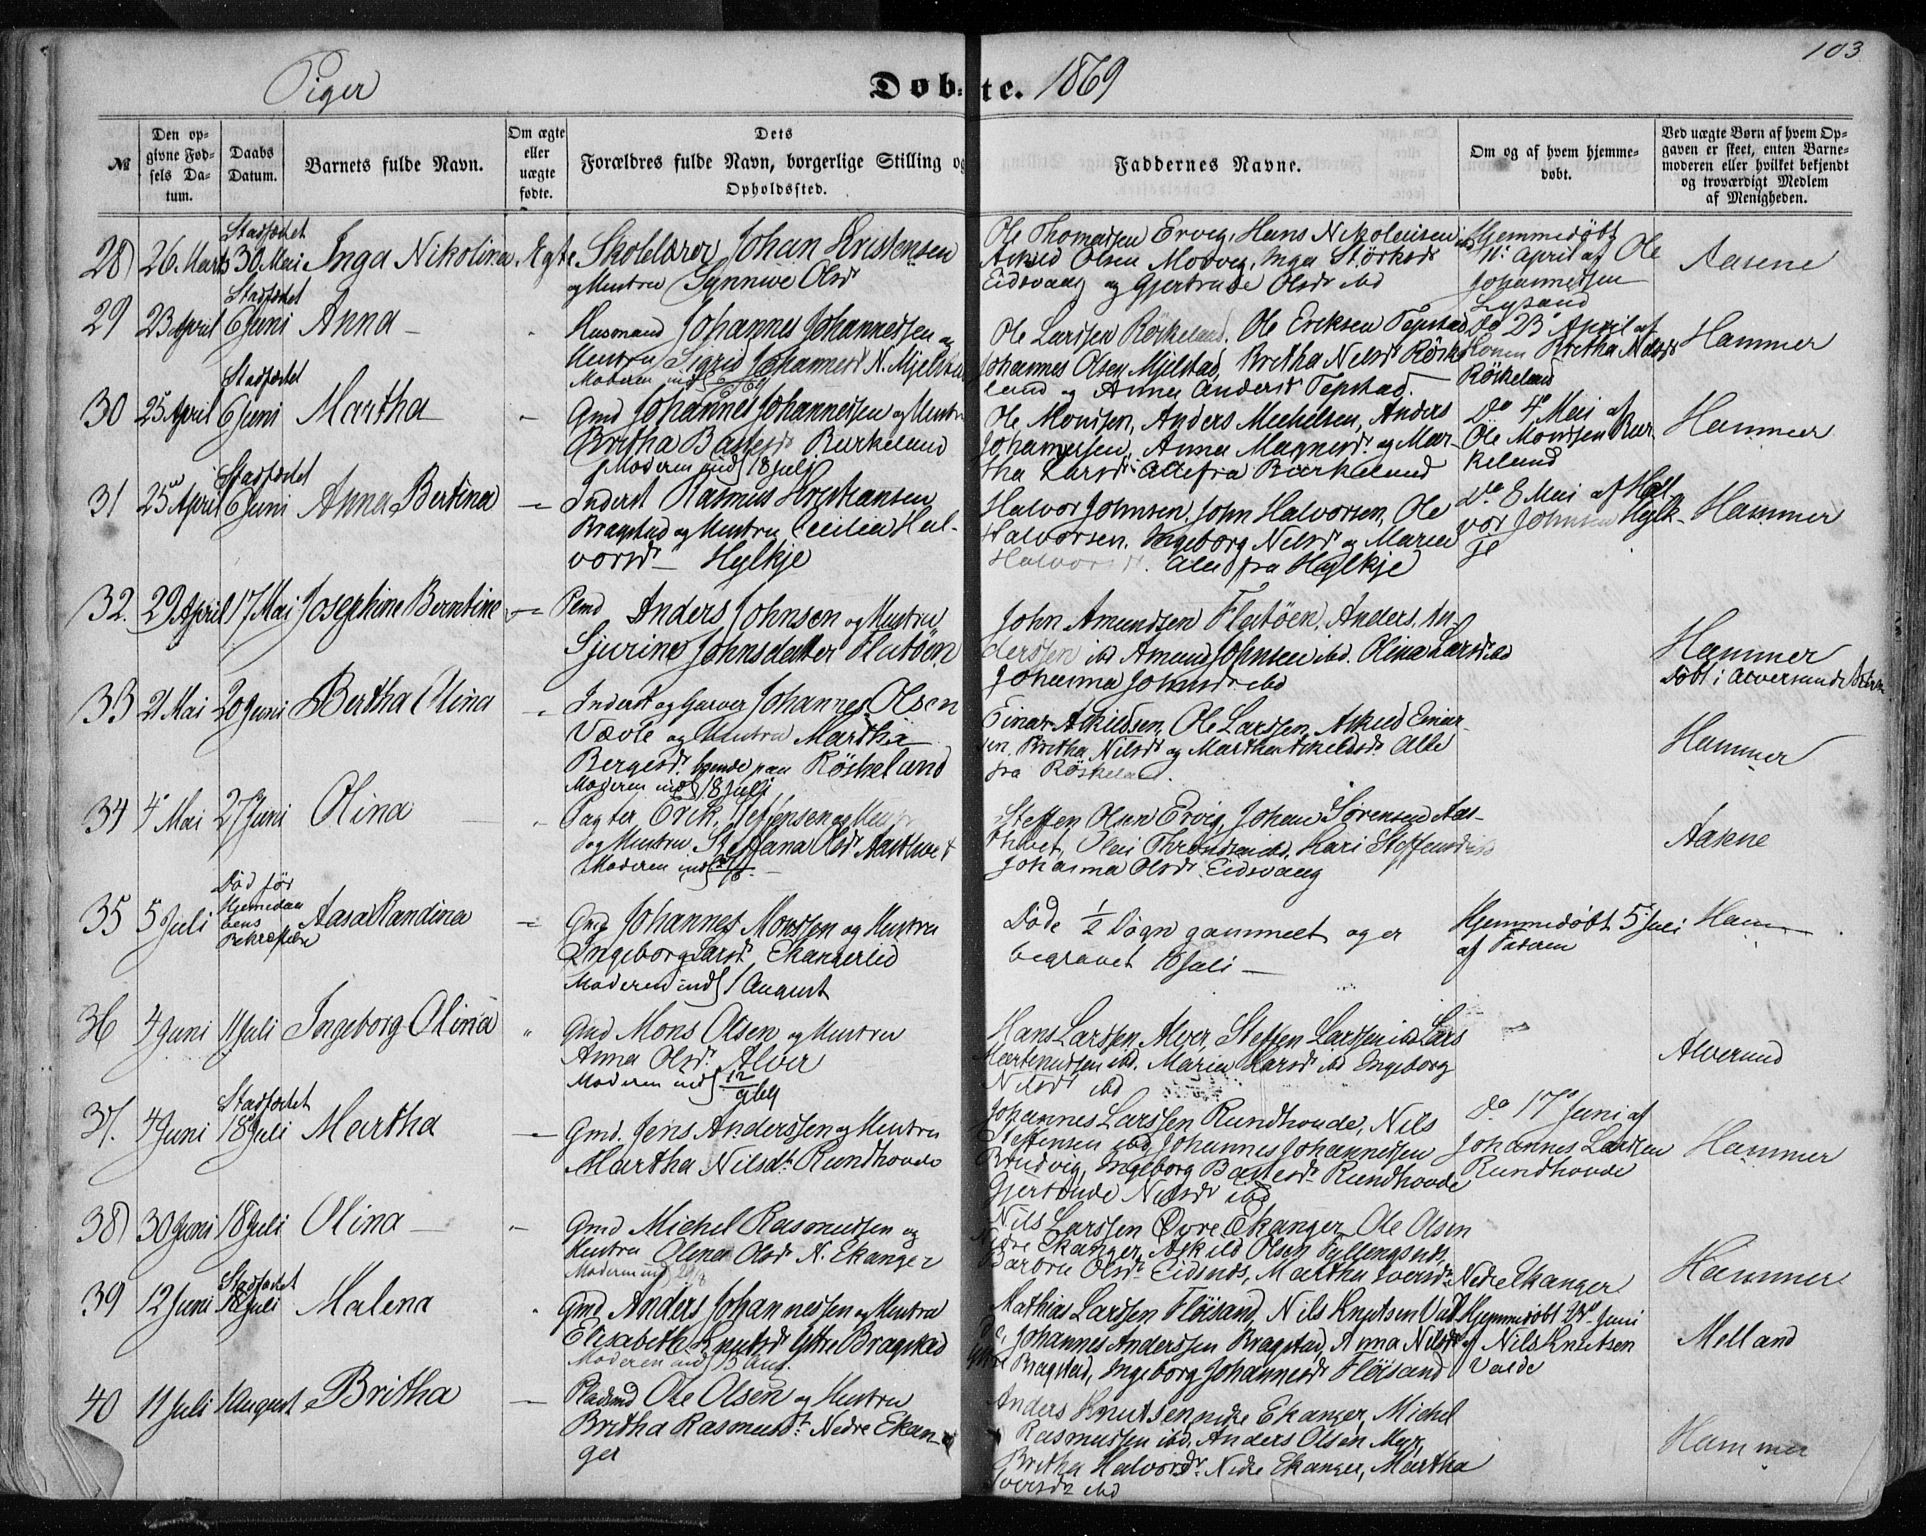 103
Piger
Døbte. 1869
№
Den op-
givne Fød-
sels Da-
tum.
Daabs
Datum.
Barnets fulde Navn.
Om ægte
eller
uægte
fødte.
Dets
Forældres fulde Navn, borgerlige Stilling og
Opholdsfted.
Faddernes Navne.
Om og af hvem hjemme-
døbt.
Ved uægte Børn af hvem Op-
gaven er skeet, enten Barne-
moderen eller hvilket bekjendt
og troværdigt Medlem
af Menigheden.
28) 26. Marts Stadfæstet 30 Mai Inga Nikolina Egte
Skolelærer Johan Kristensen
og Hustru Synnive Olsdr
Ole Thomassen Ervig, Hans Nikolaisen ibd
Olsen Modvig, Inga
Eidsvaag og Gjertrude Olsdr ibd
Hjemmedøbt
11. April af Ole
Johannessen
Lysand
Aasene
29 23 April Stadfæstet 6 Juni Anna -
Husmand Johannes Johannessen og
Hustru Sigrid Johannesdr N. Mjelstad
Moderen indl
Ole Larssen Röskeland, Ole Eriksen Tepstad
Johannes Olsen Mjelstad, Britha Nelsdr Röske
land og Anna Andersdr Tepstad.
Do 23 April af
Konen Britha Nelsdr
Röskeland
Hammer
30 25 April Stadfæstet 6 Juni Martha -
Gmd Johannes Johannessen og Hustru
Britha Burkeland
Moderen indl 18 Juli
Ole Monssen, Anders Michelsen, Anders
Johannessen, Anna Magnesdr og Mar
tha Larsdr alle fra Burkeland
Do 4 Mai af
Ole Monssen Bur
keland
Hammer
31 25 April Stadfæstet 6 Juni Anna Bertina -
Inderst Rasmus Kristiansen
Bragstad og Hustru Cecilia Hal-
vorsdr - Hylkje
Halvor Johnsen, John Halvorsen, Ole
Halvorsen, Ingeborg Nelsdr og Maria
Halvorsdr. Alle fra Hylkje
Do 8 Mai af Hal
vor Johnsen Hylk-
je
Hammer
32. 29 April 17 Mai Josephine Berntine -
Anders Johnsen og Hustru
Sjurine Johnsdatter Flatöen
John Amundsen Flatöen, Anders An
derssen ibd Amund Johnsen ibd. Olina Larsdr ibd
Johanna Johnsdr ibd
Hammer
Döbt i Alversunds
33 21 Mai 20 Juni Bertha Olina
Inderst og Garver Johannes Olsen
Vævle og Hustru Martha
Bergesdr. boende paa Röskeland
Moderen indl 18 Juli
Einar Askildsen, Ole Larssen, Askild Einar
sen, Britha Nilsdr og Martha Askildsdr Alle
fra Röskeland
Hammer
34 4 Mai 27 Juni Olina
Pagter Erik
og Hustru Steffana Olsdr Aasthvet
Moderen indl
Steffen Olsen Ervig, Johan Sörensen Aas-
thvet, Kari Steffensdr ibd
Johanna Olsdr Eidsvaag
Aasene
35 5 Juli Död før
Hjemedaa
bens
Bekræftelse
Aasa Randina -
Gmd Johannes Monssen og Hustru
Ingeborg Larsdr Ekangerlid
Moderen indl 1 August
Døde ½ Døgn gammelt og er
begravet Juli -
Hjemmedøbt 5 Juli
af Faderen
Ham
36 4 Juni 11 Juli Ingeborg Olina "
Gmd Mons Olsen og Hustru
Anna Olsdr Alver
Moderen indl 12/9 69
Hans Larssen Alver, Steffen Larssen ibd Lars
Martinussen ibd. Maria Larsdr ibd Ingeborg
Nelsdr ibd
Alversund
37. 4 Juni Stadfæstet 18 Juli Martha -
Gmd. Jens Anderssen og Hustru
Martha Nilsdr Rundhovde
Johannes Larssen Rundhovde, Nils
Steffensen ibd Johannes Johannessen
Brudvig, Ingeborg Rundhovde
Gjertrude Nelsdr ibd
Do 17 Juni af
Johannes Larssen
Rundhovde
Hammer
38) 30 Juni 18 Juli Olina -
Gmd Michel Rasmussen og
Hustru Olina Olsdr N. Ekanger
Moderen indl
Nils Larssen Øvre Ekanger, Ole Olsen
Nedre Ekanger, Askild Olsen Fyllingsnes,
Barbru Olsdr Eidsnes, Martha Iversdr Nedre Ekanger
Hammer
39 12 Juni Stadfæstet 18 Juli Malena
Gmd Anders Johannessen og Hustru
Elisabeth Knutsdr Ytre Bragstad
Moderen indl 15 Aug.
Mathias Larssen Flöisand, Nils Knutsen Val
de, Johannes Anderssen Bragstad, Anna Nilsdr
Ytre Bragstad, Ingeborg Johannesdr Flöisand
Hjemmedøbt Juni
af Nils Knutsen
Valde
Melland
40 11 Juli 1 August Britha -
Pladsmd Ole Olsen og Hustru
Britha Rasmusdr Nedre Ekan-
ger
Anders Knutsen, nedre Ekanger, Michel
Rasmussen ibd, Anders Olsen Myr,
Britha Halvorsdr Nedre Ekanger, Martha
Iversdr ibd
Hammer